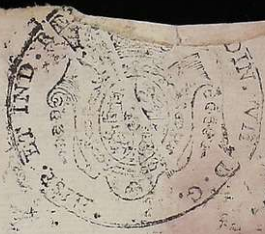 DIN. VII D. G. HISP. ET IND. RE